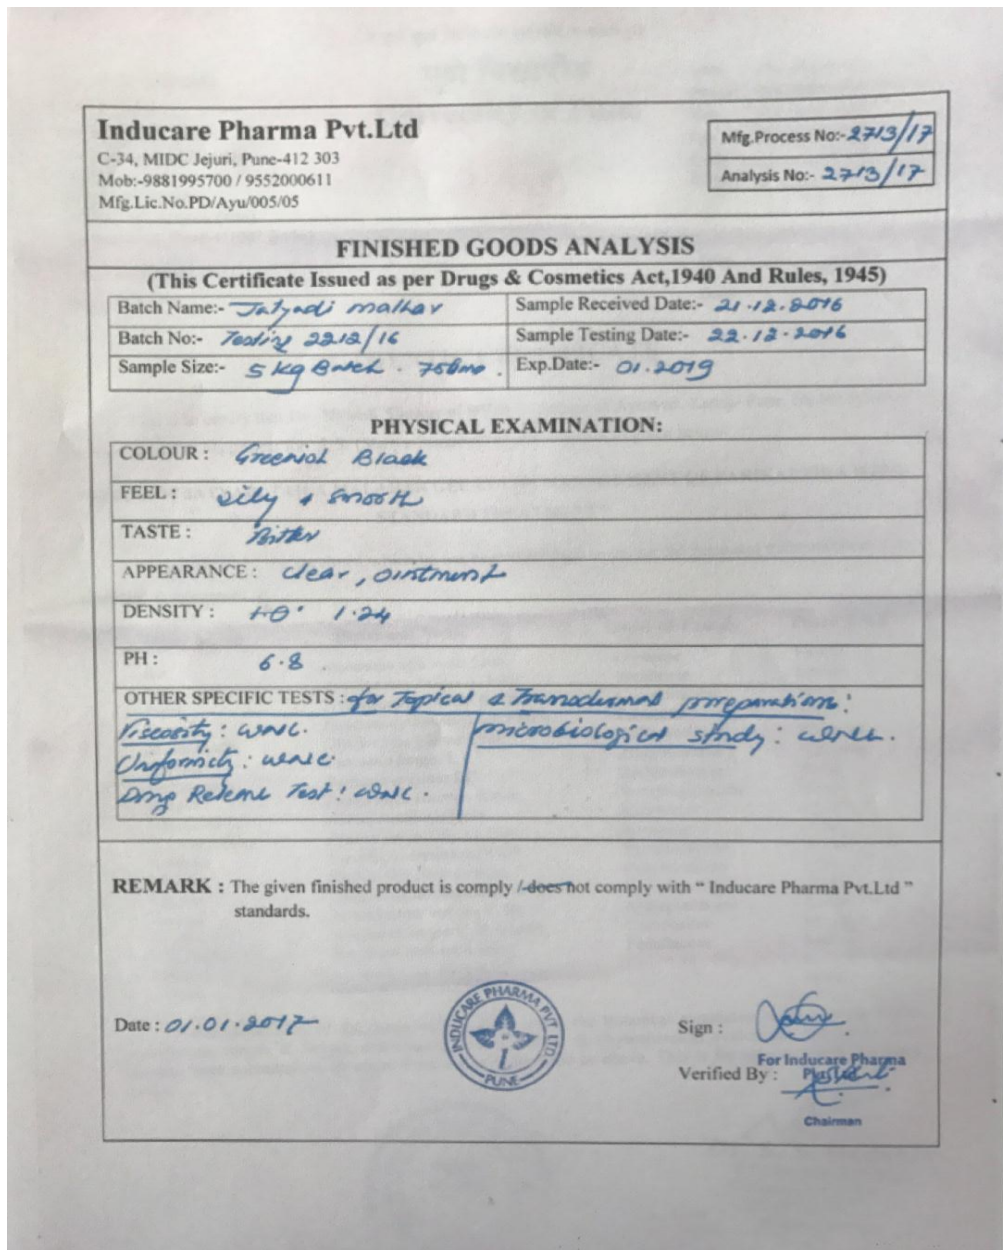 Inducare Pharma Pvt.Ltd
C-34, MIDC Jejuri, Pune-412 303
Mob:-9881995700 / 9552000611
Mfg.Lic.No.PD/Ayu/005/05
Mfg.Process No:- 2713/17
Analysis No:- 2713/17
FINISHED GOODS ANALYSIS
(This Certificate Issued as per Drugs & Cosmetics Act,1940 And Rules, 1945)
Batch Name:- Jatyadi malhar
Sample Received Date:- 21.12.2016
Batch No:- Testing 2212/16
Sample Testing Date:- 22.12.2016
Sample Size:- 5 kg Batch.
Exp.Date:- 01.2019
PHYSICAL EXAMINATION:
COLOUR : Greenish Black
FEEL : oily & smooth
TASTE : Bitter
APPEARANCE : clear, ointment
DENSITY : 1.24
PH : 6.8
OTHER SPECIFIC TESTS : for Topical & Transdermal preparation:
Viscosity: WNL.
Uniformity: WNL.
Drug Release Test: WNL.
microbiological study: WNL.
REMARK : The given finished product is comply / does not comply with “ Inducare Pharma Pvt.Ltd ”
standards.
Date : 01.01.2017
INDUCARE PHARMA PVT. LTD.
PUNE
Sign :
For Inducare Pharma
Verified By :
Chairman